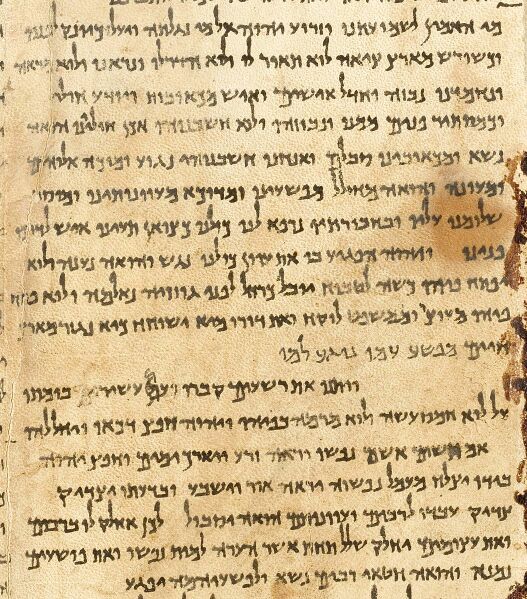 מי האמין לשמועתנו וזרוע יהוה אל מי נגלתה ויעל כיונק לפניו
וכשורש מארץ ציה לוא תאור לו ולוא הדר לו ונראנו ולוא מראה
ונחמדנו נבזה וחדל אישים ואיש מכאובות ויודע חולי
וכמסתיר פנים ממנו ונבוזהו ולוא חשבנוהו אכן חוליינו הואה
נשא ומכאובינו סבלם ואנחנו חשבנוהו נגוע ומוכה אלוהים
ומעונה והואה מחולל מפשעינו ומדוכא מעוונותינו ומוסר
שלומנו עליו ובחבורתיו נרפא לנו כולנו כצואן תעינו איש לדרכו
פנינו ויהוה הפגיע בו את עוון כולנו נגש והואה נענה ולוא
יפתח פיהו כשה לטבוח יובל כרחל לפני גוזזיה נאלמה ולוא פתח
פיהו מעוצר וממשפט לוקח ואת דורו מיא ישוחח כיא נגזר מארץ
חיים מפשע עמו נוגע למו
ויתנו את רשעים קברו ועם בומתו
על לוא חמס עשה ולוא מרמה בפיהו ויהוה חפץ דכאו ויחללהו
אם תשים אשם נפשו יראה זרע ויארך ימים וחפץ יהוה
בידו יצלח מעמל נפשוה יראה אור וישבע ובדעתו יצדיק
צדיק עבדו לרבים ועוונותם הואה יסבול לכן אחלק לו ברבים
ואת עצומים יחלק שלל תחת אשר הערה למות נפשו ואת פושעים
נמנא והואה חטאי רבים נשא ולפשעיהמה יפגע